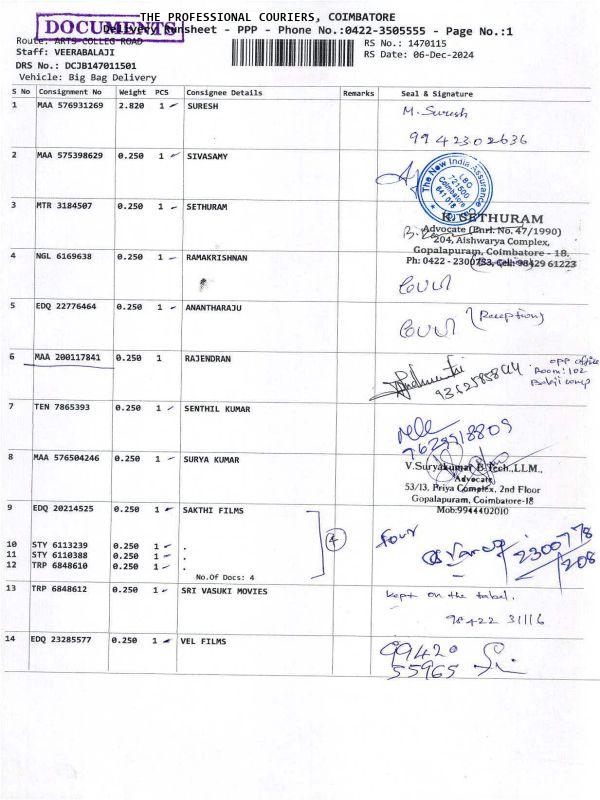 THE PROFESSIONAL COURIERS, COIMBATORE
DOCUMENTS
Delivery Runsheet - PPP - Phone No.:0422-3505555 - Page No.:1
Route: ARTS COLLEG ROAD
RS No.: 1470115
Staff: VEERABALAJI
RS Date: 06-Dec-2024
DRS No.: DCJB147011501
Vehicle: Big Bag Delivery
S No Consignment No Weight PCS Consignee Details Remarks Seal & Signature
1 MAA 576931269 2.820 1 SURESH M. Suresh
9942302636
2 MAA 575398629 0.250 1 SIVASAMY
The New India Assurance
LBO
721500
Coimbatore
641 018
3 MTR 3184507 0.250 1 SETHURAM
K. SETHURAM
Advocate (Enrl. No. 47/1990)
204, Aishwarya Complex,
Gopalapuram, Coimbatore - 18.
Ph: 0422 - 2300753, Cell: 98429 61223
4 NGL 6169638 0.250 1 RAMAKRISHNAN
5 EDQ 22776464 0.250 1 ANANTHARAJU (Reception)
6 MAA 200117841 0.250 1 RAJENDRAN
opp office
Room: 102
7 TEN 7865393 0.250 1 SENTHIL KUMAR
7629918809
8 MAA 576504246 0.250 1 SURYA KUMAR
V.Suryakumar B.Tech.,LLM.,
Advocate
53/13, Priya Complex, 2nd Floor
Gopalapuram, Coimbatore-18
Mob:9944402010
9 EDQ 20214525 0.250 1 SAKTHI FILMS
4
four
10 STY 6113239 0.250 1 .
11 STY 6110388 0.250 1 .
12 TRP 6848610 0.250 1 .
2300778
208
No.Of Docs: 4
13 TRP 6848612 0.250 1 SRI VASUKI MOVIES
kept on the tabel.
98422 31116
14 EDQ 23285577 0.250 1 VEL FILMS
99420
55965